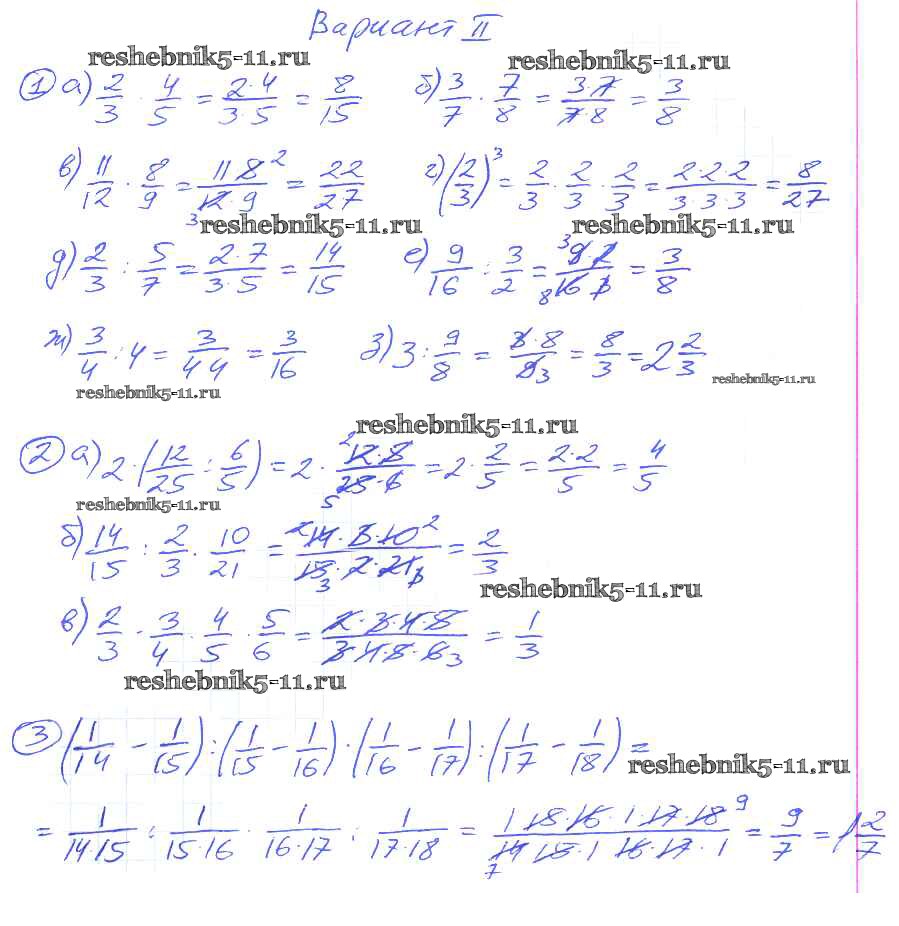 Вариант II
reshebnik5-11.ru reshebnik5-11.ru
1 а) 2/3 · 4/5 = 2·4/3·5 = 8/15 б) 3/7 · 7/8 = 3·7/7·8 = 3/8
в) 11/12 · 8/9 = 11 8 2/12·9 3 = 22/27 г) (2/3)³ = 2/3 · 2/3 · 2/3 = 2·2·2/3·3·3 = 8/27
reshebnik5-11.ru reshebnik5-11.ru
д) 2/3 : 5/7 = 2·7/3·5 = 14/15 е) 9/16 : 3/2 = 3 9·2/8 16 3 = 3/8
ж) 3/4 : 4 = 3/4 4 = 3/16 з) 3 : 9/8 = 3·8/9 3 = 8/3 = 2 2/3
reshebnik5-11.ru reshebnik5-11.ru
reshebnik5-11.ru
2 а) 2 · (12/25 : 6/5) = 2 · 2 12·5/5 25·6 = 2 · 2/5 = 2·2/5 = 4/5
reshebnik5-11.ru
б) 14/15 : 2/3 · 10/21 = 2 14·3·10 2/15 3·2·21 3 = 2/3
reshebnik5-11.ru
в) 2/3 · 3/4 · 4/5 · 5/6 = 2·3·4·5/3·4·5·6 3 = 1/3
reshebnik5-11.ru
3 (1/14 − 1/15) : (1/15 − 1/16) · (1/16 − 1/17) : (1/17 − 1/18) =
reshebnik5-11.ru
= 1/14·15 : 1/15·16 · 1/16·17 : 1/17·18 = 1 15·16·1·17·18 9/14 7 15·1 16·17·1 = 9/7 = 1 2/7